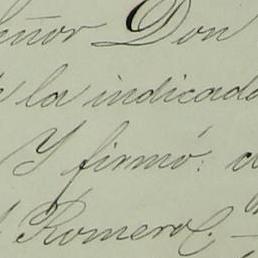 eñor Don
la indicada
Y firmó:
Romero.